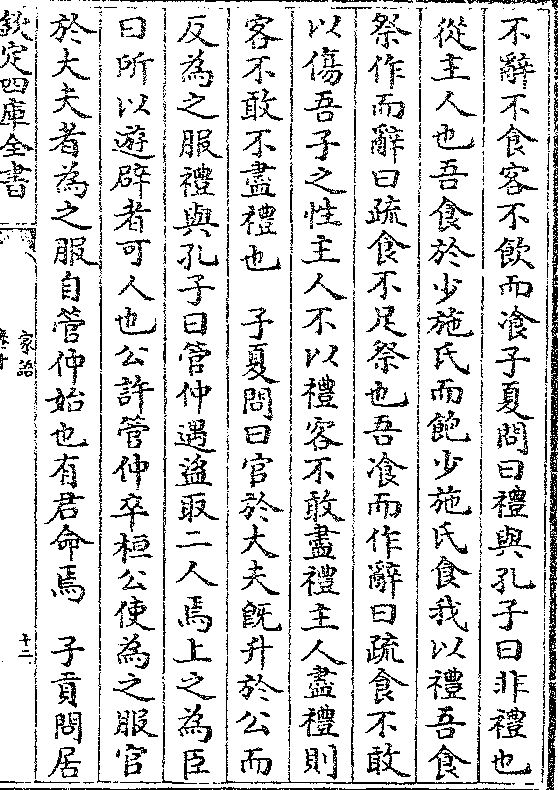 不辭不食客不飲而飡子夏問曰禮與孔子曰非禮也
從主人也吾食於少施氏而飽少施氏食我以禮吾食
祭作而辭曰疏食不足祭也吾飡而作辭曰疏食不敢
以傷吾子之性主人不以禮客不敢盡禮主人盡禮則
客不敢不盡禮也　子夏問曰官於大夫既升於公而
反為之服禮與孔子曰管仲遇盜取二人焉上之為臣
曰所以遊辟者可人也公許管仲卒桓公使為之服官
於大夫者為之服自管仲始也有君命焉　子貢問居
欽定四庫全書
家語
十二